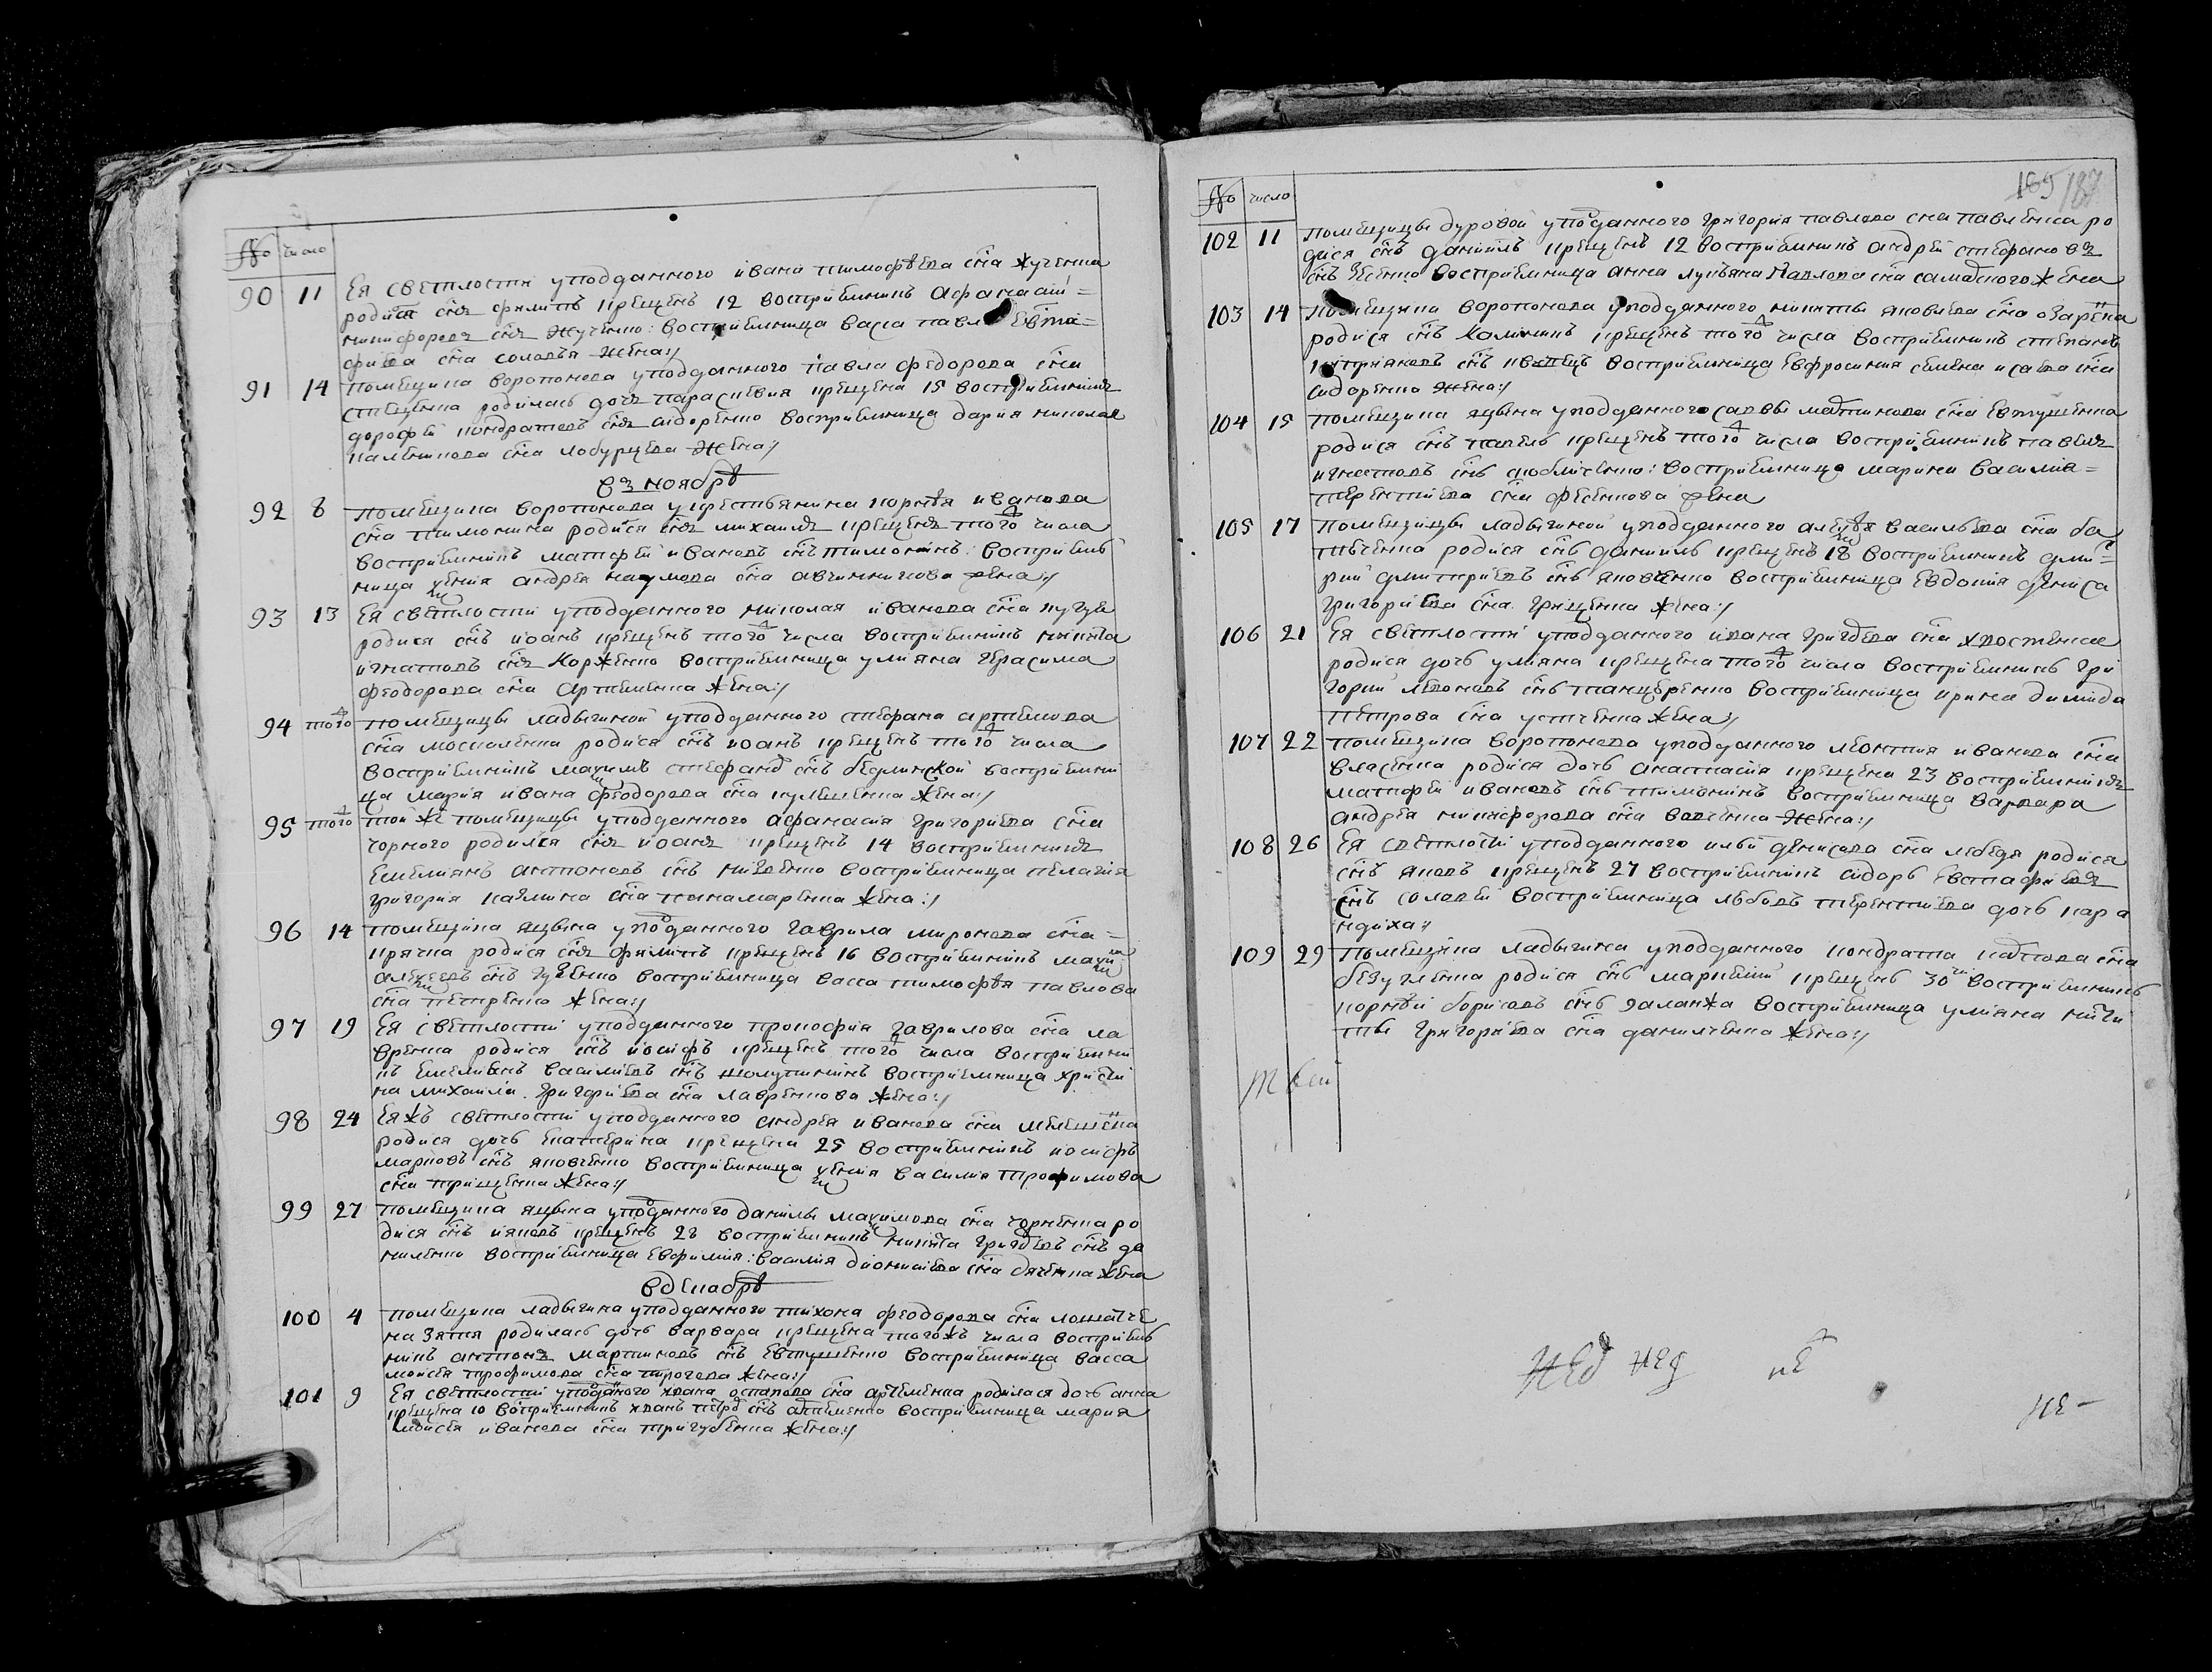 № число
90 11 Ея светлости уподданного ивана тимофѣева сна жученка
родися снъ филипъ крещенъ 12 восприемникъ афанасий
никифоровъ снъ жученко: восприемница васса павла Евста=
фиева сна соловья жена:/
91 14 помещика воропонова уподданного павла федорова сна
стеценка родилась дочъ параскевия крещена 15 восприемникъ
дорофей кондратовъ снъ сидоренко восприемница дария николая
каленикова сна лобурцева жена:/
въ ноябрѣ
92 8 помещика воропонова укрестьянина корнѣя иванова
сна тимонина родися снъ михаилъ крещенъ того числа
восприемникъ матфей ивановъ снъ тимонинъ: восприем
ница ксения андрея наумова сна овчинникова жена:/
93 13 Ея светлости уподданного николая иванова сна кугуе
родися снъ иоанъ крещенъ того числа восприемникъ никита
игнатовъ снъ Корженко восприемница улияна герасима
феодорова сна артеменка жена:/
94 того помещицы ладыгиной уподданного стефана артемова
сна москаленка родися снъ иоанъ крещенъ того числа
восприемникъ максимъ стефановъ снъ бедлинской восприемни
ца мария ивана феодорова сна кулешенка жена:/
95 того той же помещицы уподданного афанасия григориева сна
чорного родился снъ иоанъ крещенъ 14 восприемникъ
емелиянъ антоновъ снъ матвенко восприемница пелагия
григория калмина сна панамаренка жена:/
96 14 помещика яцына уподданного гаврила миронова сна=
крячка родися снъ филипъ крещенъ 16 восприемникъ максим
алексеевъ снъ гученко восприемница васса тимофѣя павлова
сна петренка жена:/
97 19 Ея светлости уподданного прокофия гаврилова сна ла
вренка родися снъ иосифъ крещенъ того числа восприемни
къ емелиянъ василиевъ снъ шолутининъ восприемница христи
на михаила григориева сна лавренкова жена:/
98 24 Еяжъ светлости уподданного андрея иванова сна мелешенка
родися дочъ екатерина крещена 25 восприемникъ иосифъ
марковъ снъ яковченко восприемница ксения василия трофимова
сна грищенка жена:/
99 27 помещика яцына уподданного данилы максимова сна чорненка ро
дися снъ иаковъ крещенъ 28 восприемникъ никита григориевъ снъ да
ниленко восприемница евфимия: василия дионисиева сна дяченка жена
в декабрѣ
100 4 помещика ладыгина уподданного тихона феодорова сна лошатче
на зятя родилась дочъ варвара крещена тогожъ числа восприем
никъ антонъ мартиновъ снъ евтушенко восприемница васса
моисея трофимова сна пирогова жена:/
101 9 Ея светлости уподданого ивана остапова сна артеменка родилася дочъ анна
крещена 10 восприемникъ иванъ петровъ снъ артеменко восприемница мария
моисея иванова сна тригубенка жена:/
№ число 189 187
102 11 помещицы дуровой уподданного григория павлова сна павленка ро
дися снъ даниилъ крещенъ 12 восприемникъ андрей стефановъ
снъ зеенко восприемница анна лукьяна Павлова сна самацкого жена
103 14 помещика воропонова уподданного никиты яковлева сна озаренка
родися снъ Калиникъ крещенъ того числа восприемникъ степанъ
киприяновъ снъ ивахъ восприемница евфросиния семена исаева сна
сидоренка жена:/
104 15 помещика яцына уподданного саввы матинова сна евтушенка
родися снъ павелъ крещенъ того числа восприемникъ павелъ
игнатовъ снъ скобличенко: восприемница марина василия=
терентиева сна фесенкова жена
105 17 помещицы ладыгиной уподданного алексѣя васильева сна ба
тиченка родися снъ даниилъ крещенъ 18 восприемникъ дми=
рий дмитриевъ снъ яковченко восприемница евдокия дениса
григориева сна грищенка жена:/
106 21 Ея светлости уподданного ивана григориева сна хвостенка
родися дочъ улияна крещена того числа восприемникъ гри
горий леоновъ снъ танцуренко восприемница ирина димида
петрова сна устченка жена:/
107 22 помещика воропонова уподданного леонтия иванова сна
власенка родися дочъ анастасия крещена 23 восприемникъ
матфей ивановъ снъ тимонинъ восприемница варвара
андрея никифорова сна волченка жена:/
108 26 Ея светлости уподданного ильи денисова сна лебедя родися
снъ яковъ крещенъ 27 восприемникъ сидоръ евстафиевъ
снъ соловей восприемница любовъ терентиева дочъ кара
ндиха:/
109 29 помещика ладыгина уподданного кондрата карпова сна
безугленка родися снъ маркелий крещенъ 30 восприемникъ
корнѣй борисовъ снъ заланжа восприемница улияна ники
ты григориева сна данилченка жена:/